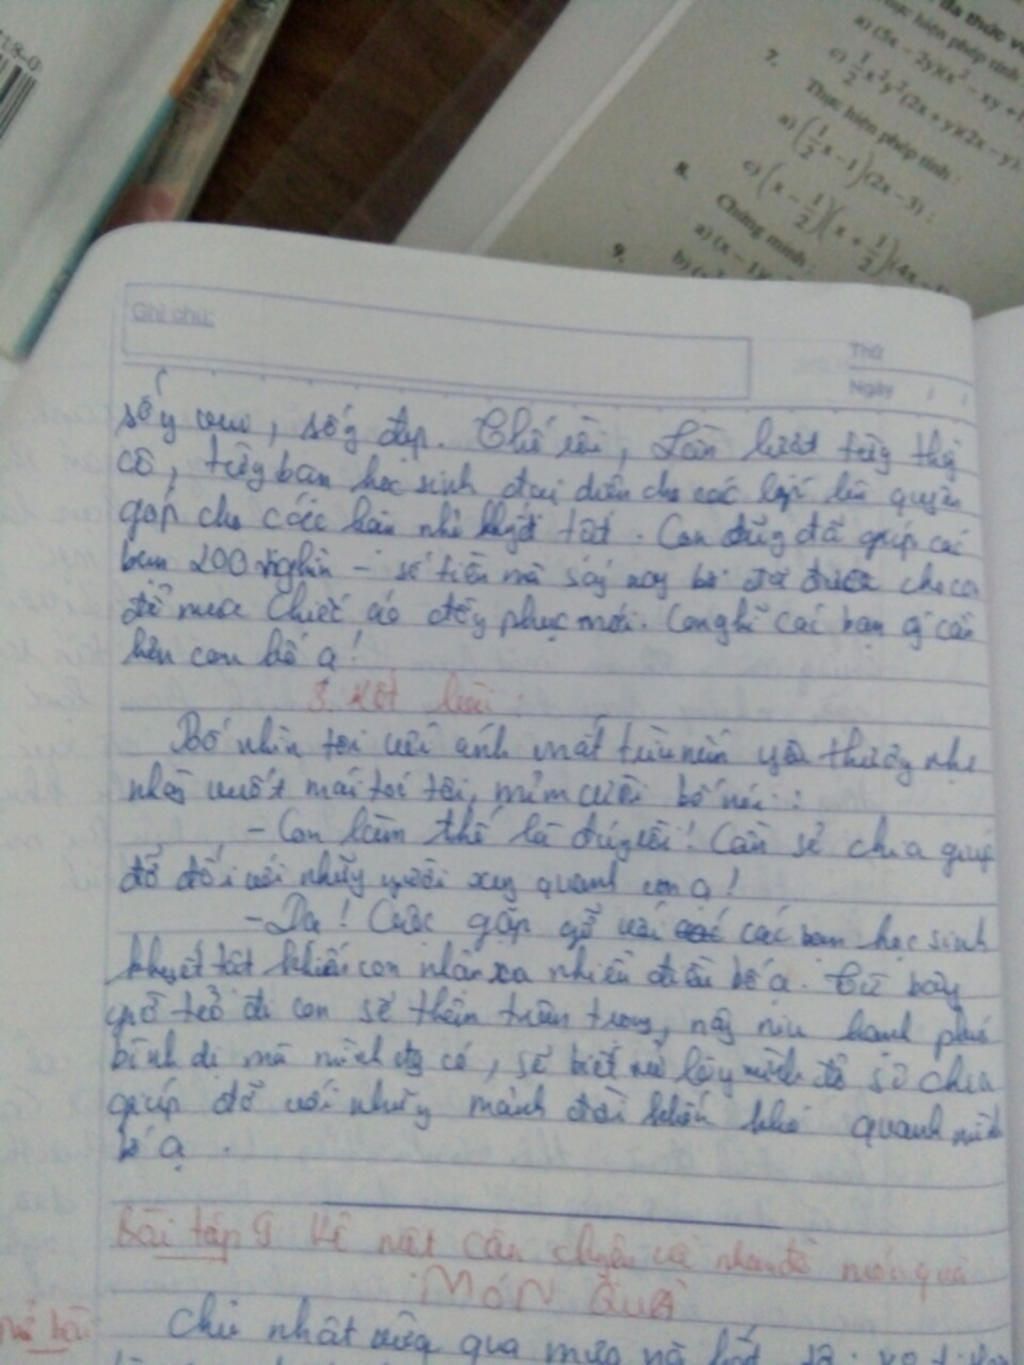 đa thức v
Thực hiện phép tính
a) (5x - 2y)(x² - xy + 1
c) 1/2 x²y²(2x + y)(2x - y)
7. Thực hiện phép tính :
a) (1/2 x - 1)(2x - 3) ;
c) (x - 1/2)(x + 1/2)(4x -
8. Chứng minh :
a) (x - 1)(
9.
b) (
Ghi chú:
Thứ
Ngày / /
sống vui, sống đẹp. Thế rồi, Lần lượt từng thầy
cô, từng bạn học sinh đại diện cho các lớp lên quyên
góp cho các bạn nhỏ khuyết tật. Con cũng đã giúp các
bạn 200 nghìn - số tiền mà sáng nay bố đã đưa cho con
để mua chiếc áo đồng phục mới. Con nghĩ các bạn ấy cần
hơn con bố ạ!
3. Kết bài :
Bố nhìn tôi với ánh mắt trìu mến yêu thương nhẹ
nhàng vuốt mái tóc tôi, mỉm cười bố nói :
- Con làm thế là đúng rồi! Cần sẻ chia giúp
đỡ đối với những người xung quanh con ạ!
- Dạ! Cuộc gặp gỡ với các bạn học sinh
khuyết tật khiến con nhận ra nhiều điều bố ạ. Từ bây
giờ trở đi con sẽ thêm trân trọng, nâng niu hạnh phúc
bình dị mà mình đang có, sẽ biết mở lòng mình để sẻ chia
giúp đỡ với những mảnh đời khốn khó quanh mình
bố ạ.
Bài tập 9 Kể một câu chuyện với nhan đề món quà
MÓN QUÀ
mở bài
Chủ nhật vừa qua